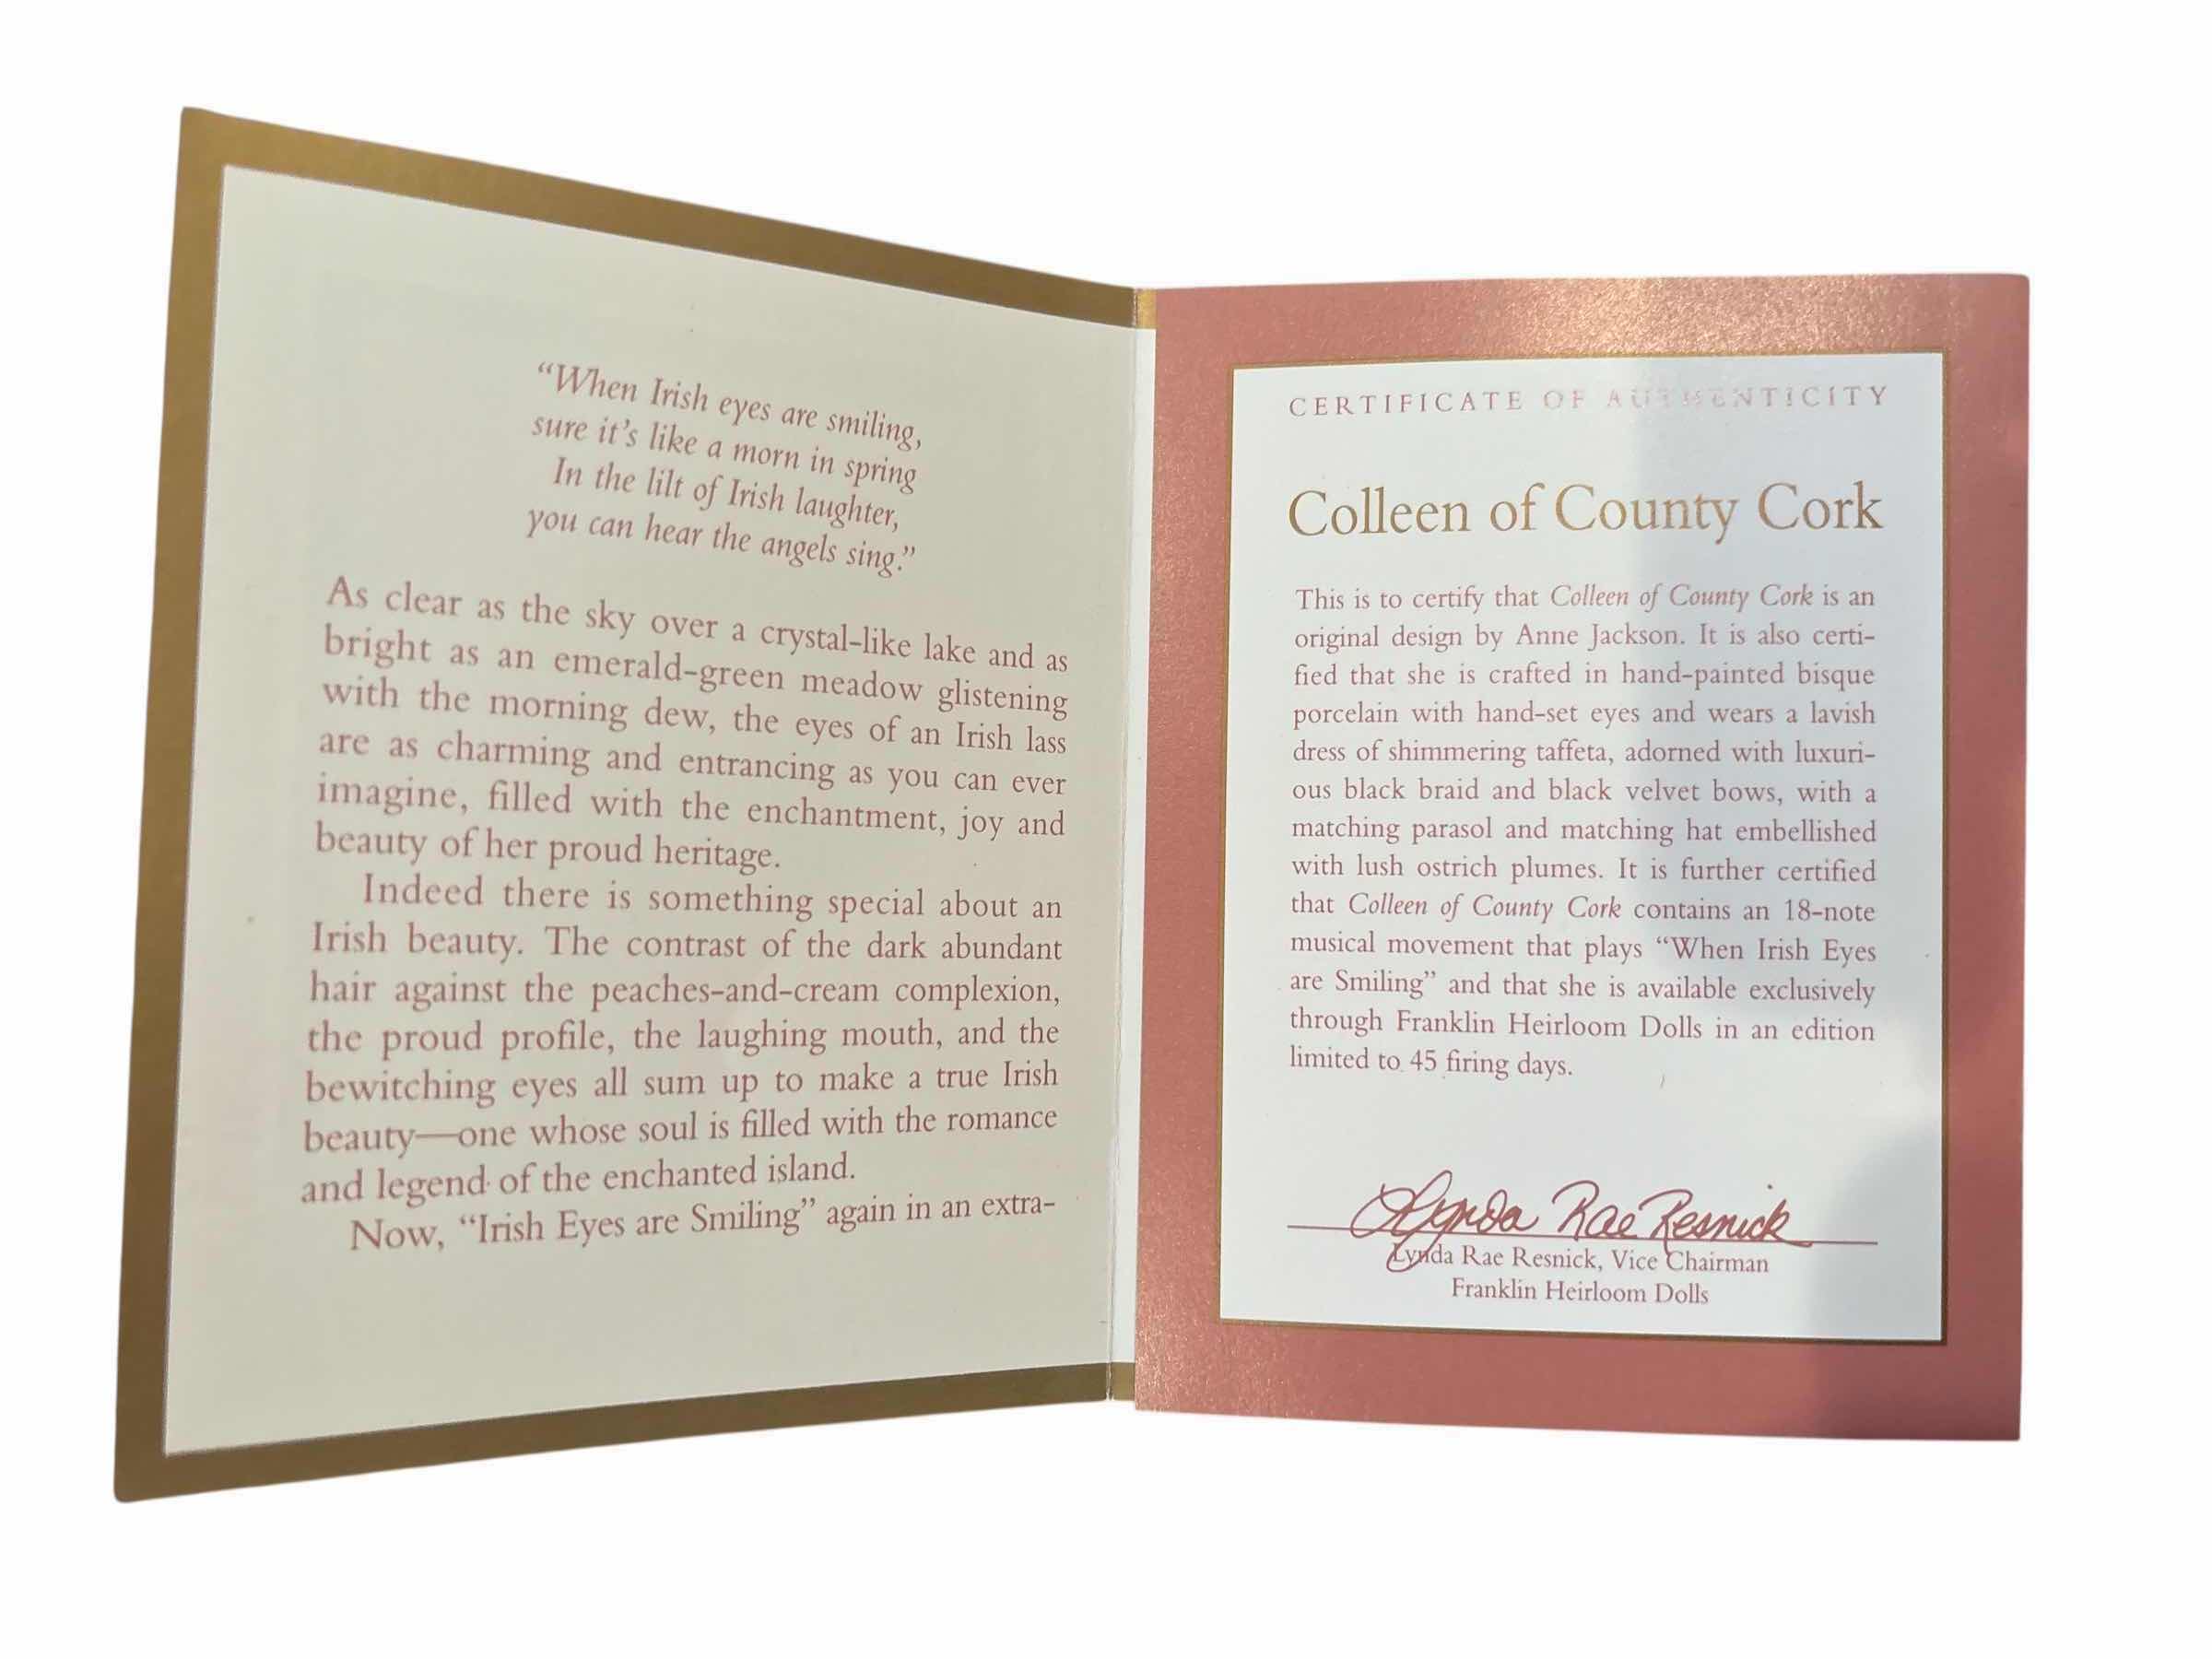 “When Irish eyes are smiling,
sure it’s like a morn in spring
In the lilt of Irish laughter,
you can hear the angels sing.”
As clear as the sky over a crystal-like lake and as
bright as an emerald-green meadow glistening
with the morning dew, the eyes of an Irish lass
are as charming and entrancing as you can ever
imagine, filled with the enchantment, joy and
beauty of her proud heritage.
Indeed there is something special about an
Irish beauty. The contrast of the dark abundant
hair against the peaches-and-cream complexion,
the proud profile, the laughing mouth, and the
bewitching eyes all sum up to make a true Irish
beauty—one whose soul is filled with the romance
and legend of the enchanted island.
Now, “Irish Eyes are Smiling” again in an extra-
CERTIFICATE OF AUTHENTICITY
Colleen of County Cork
This is to certify that Colleen of County Cork is an
original design by Anne Jackson. It is also certi-
fied that she is crafted in hand-painted bisque
porcelain with hand-set eyes and wears a lavish
dress of shimmering taffeta, adorned with luxuri-
ous black braid and black velvet bows, with a
matching parasol and matching hat embellished
with lush ostrich plumes. It is further certified
that Colleen of County Cork contains an 18-note
musical movement that plays “When Irish Eyes
are Smiling” and that she is available exclusively
through Franklin Heirloom Dolls in an edition
limited to 45 firing days.
Lynda Rae Resnick
Lynda Rae Resnick, Vice Chairman
Franklin Heirloom Dolls